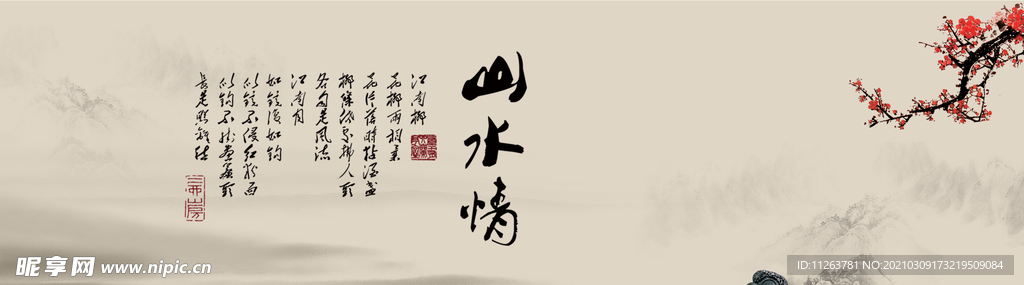 山水情
江南柳
花柳兩相柔
花片落時粘酒盞
柳條低處拂人頭
各自是風流
江南月
如鏡復如鉤
似鏡不侵紅粉面
似鉤不掛畫簾頭
長是照離愁
昵享网 www.nipic.cn
ID:11263781 NO:20210309173219509084